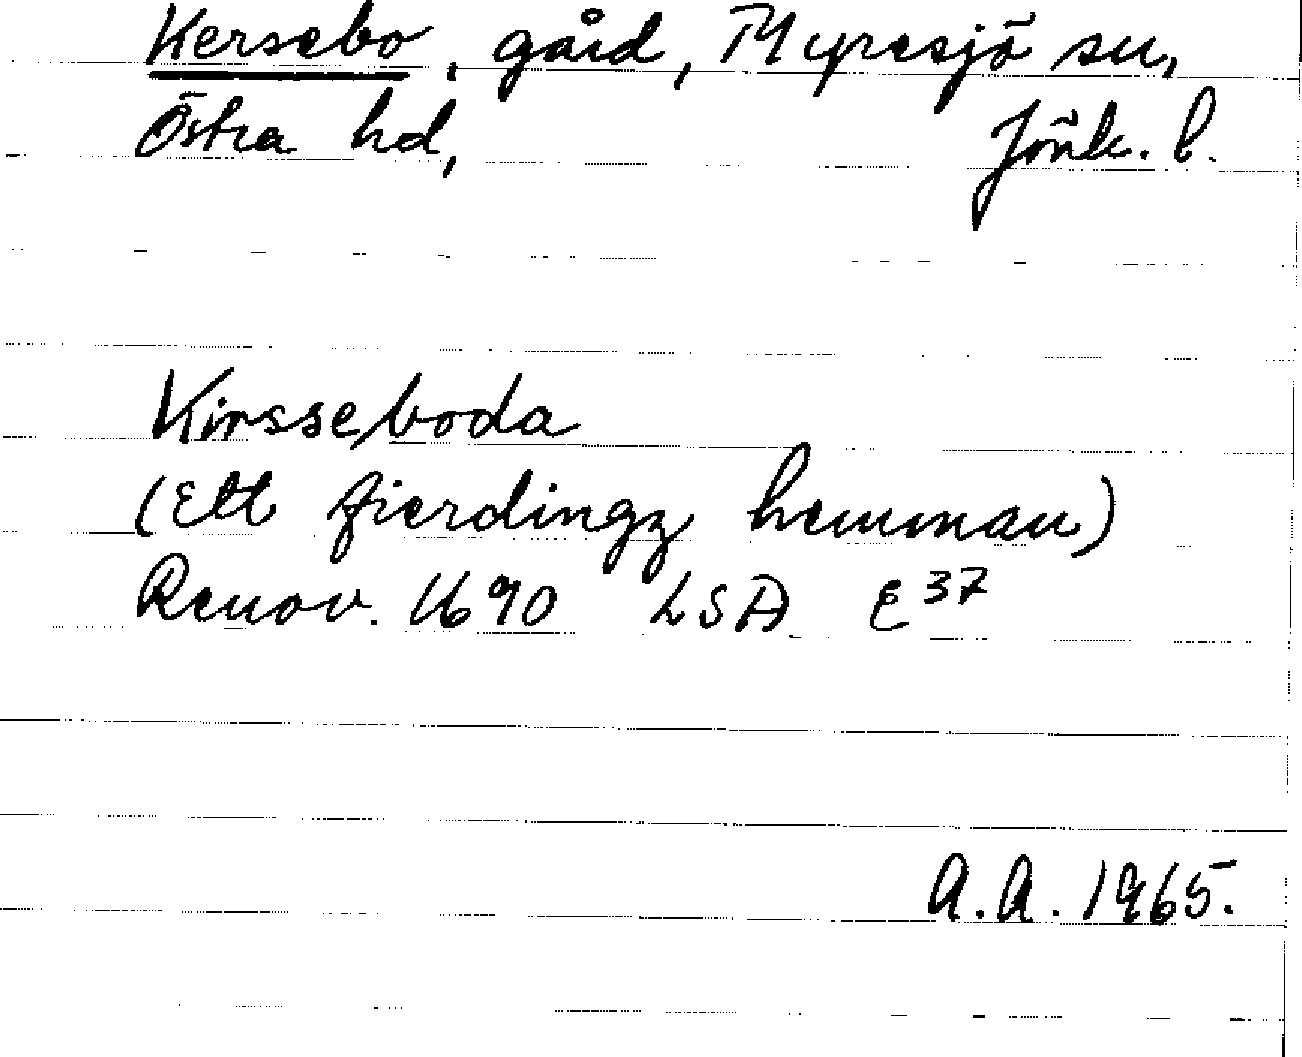 Kersebo, gård, Myresjö sn,
Östra hd, Jönk. l.
Kirsseboda
(Ett fierdingz hemman)
Renov. 1690 LSA E 37
A.A. 1965.